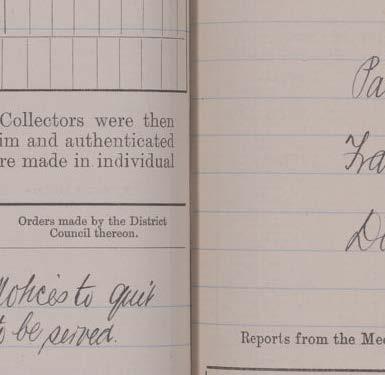 Collectors were then
im and authenticated
re made in individual
Orders made by the District
Council thereon.
Notices to quit
to be served.
Pa
Fra
Do
Reports from the Med